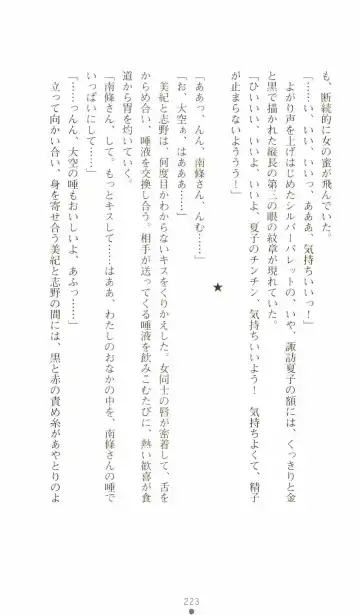 も、断続的に女の蜜が飛んでいた。
「……い、いい、いいっ、あああ、気持ちいいっ！」
よがり声を上げはじめたシルバーバレットの、いや、諏訪夏子の額には、くっきりと金
と黒で描かれた縦長の第三の眼の紋章が現れていた。
「ひいいい、いいよ、いいよ、夏子のチンチン、気持ちいいよう！　気持ちよくて、精子
が止まらないようう！」
★
「ああっ、んん、南條さん、んむ……」
「お、大空ぁ、はあああ……」
美紀と志野は、何度目かわからないキスをくりかえした。女同士の唇が密着して、舌を
からめ合い、唾液を交換し合う。相手が送ってくる唾液を飲みこむたびに、熱い歓喜が食
道から胃を灼いていく。
「南條さん、して。もっとキスして……はああ、わたしのおなかの中を、南條さんの唾で
いっぱいにして……」
「……っんん、大空の唾もおいしいよ、あふっ……」
立って向かい合い、身を寄せ合う美紀と志野の間には、黒と赤の責め糸があやとりのよ
223